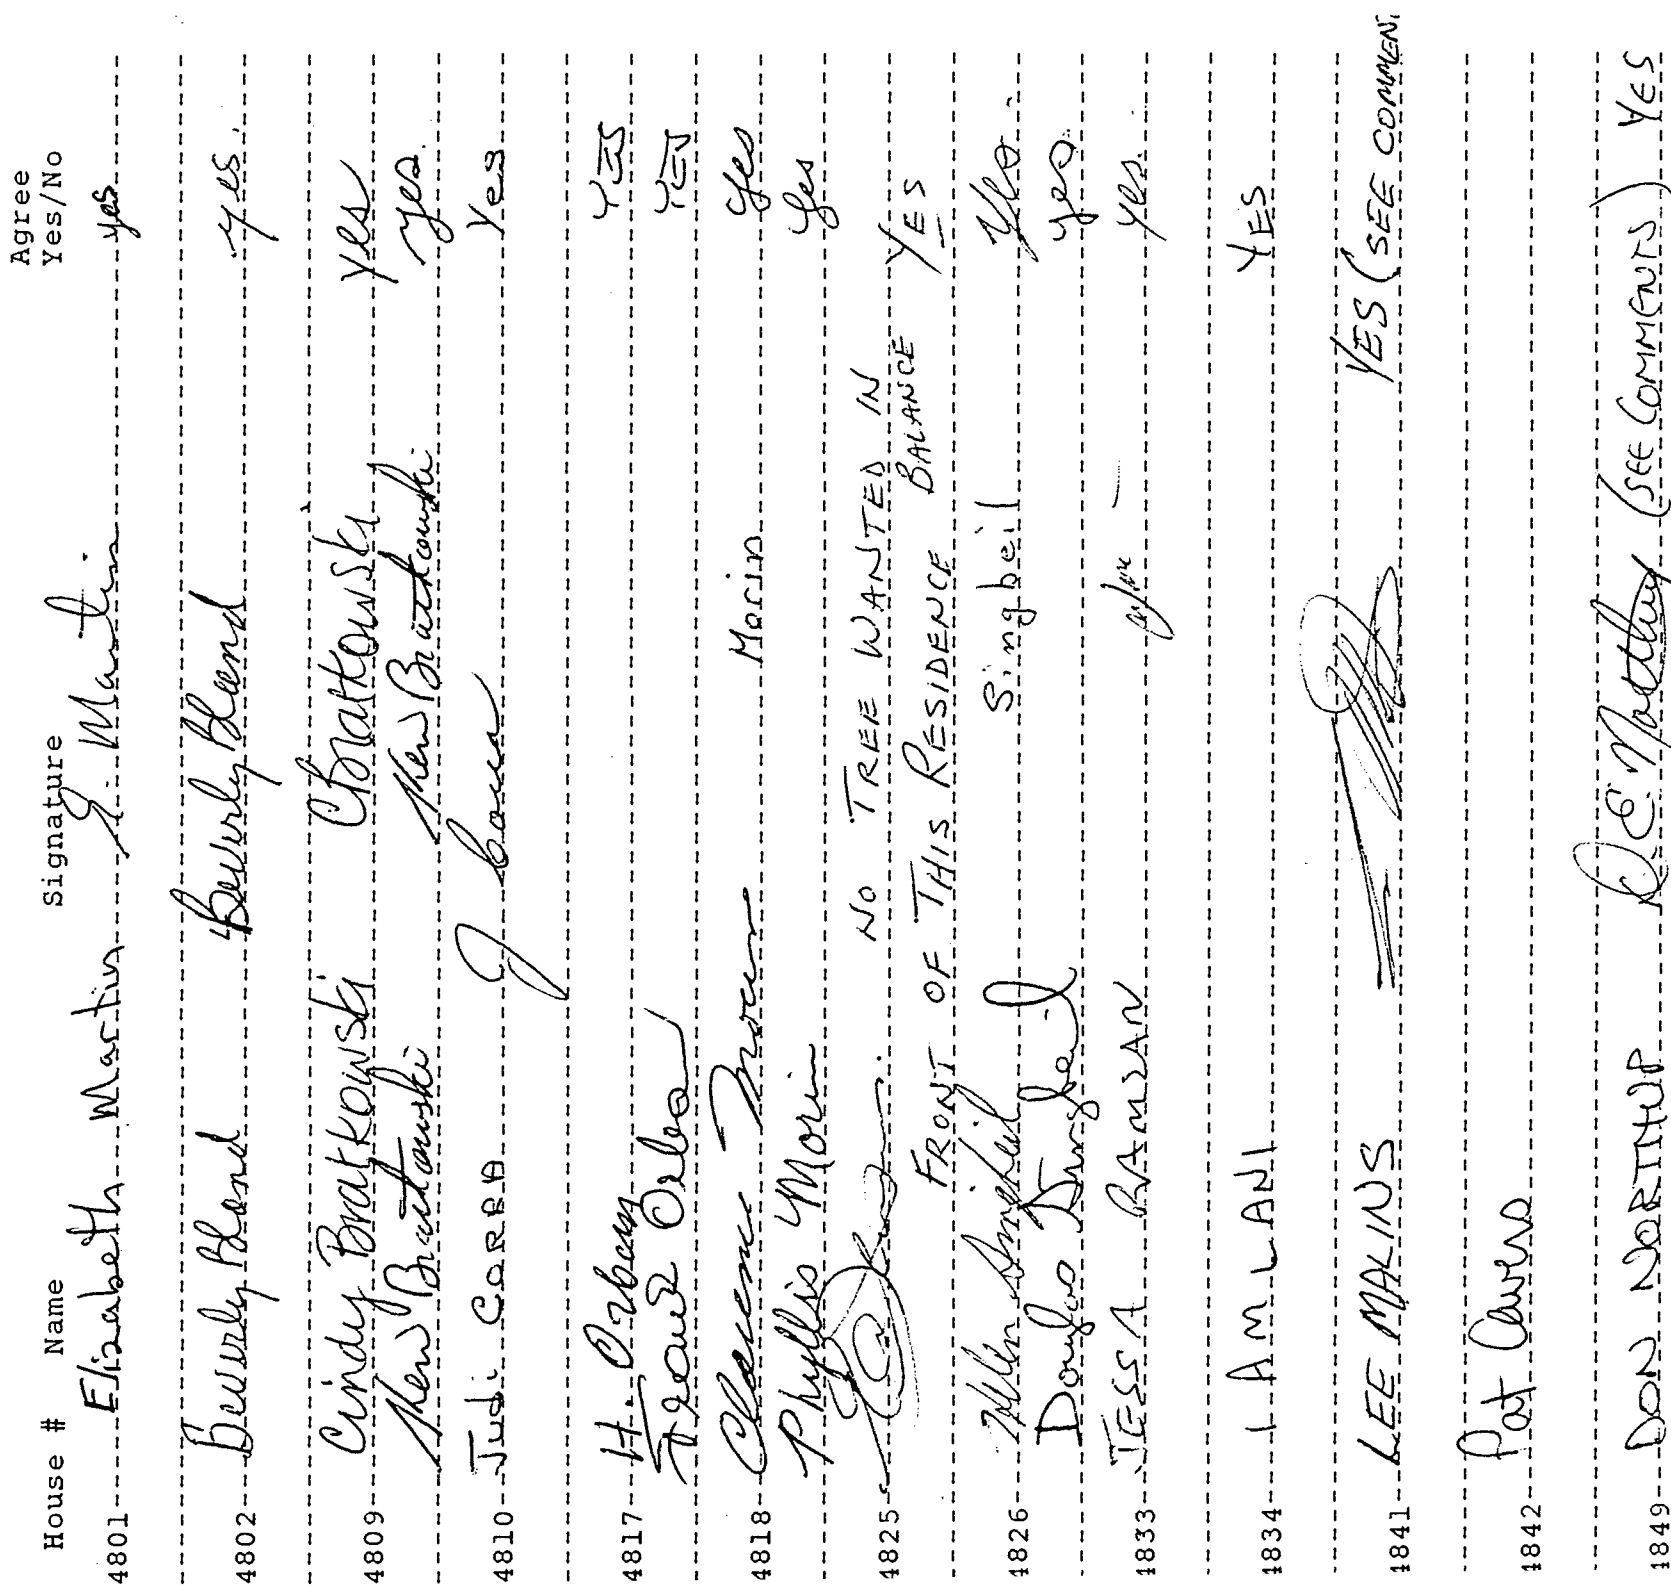 Agree
House # Name Signature Yes/No
4801 Elizabeth Martin E. Martin yes
4802 Beverly Blend Beverly Blend yes.
4809 Cindy Bratkowski CBratkowski yes
Ken Bratkowski Ken Bratkowski yes.
4810 Judi CORBA J Yes
4817 H. Orban YES
YES
4818 Clarence Morin Morin yes
Phyllis Morin yes
4825 NO TREE WANTED IN
FRONT OF THIS RESIDENCE BALANCE YES
4826 Singbeil yes.
Douglas Singbeil yes
4833 JESSA RAMZAN yes.
4834 I AMLANI YES
4841 LEE MALINS YES (SEE COMMENT
4842 Pat
4849 DON NORTHUP D.E. Northup (SEE COMMENTS) YES